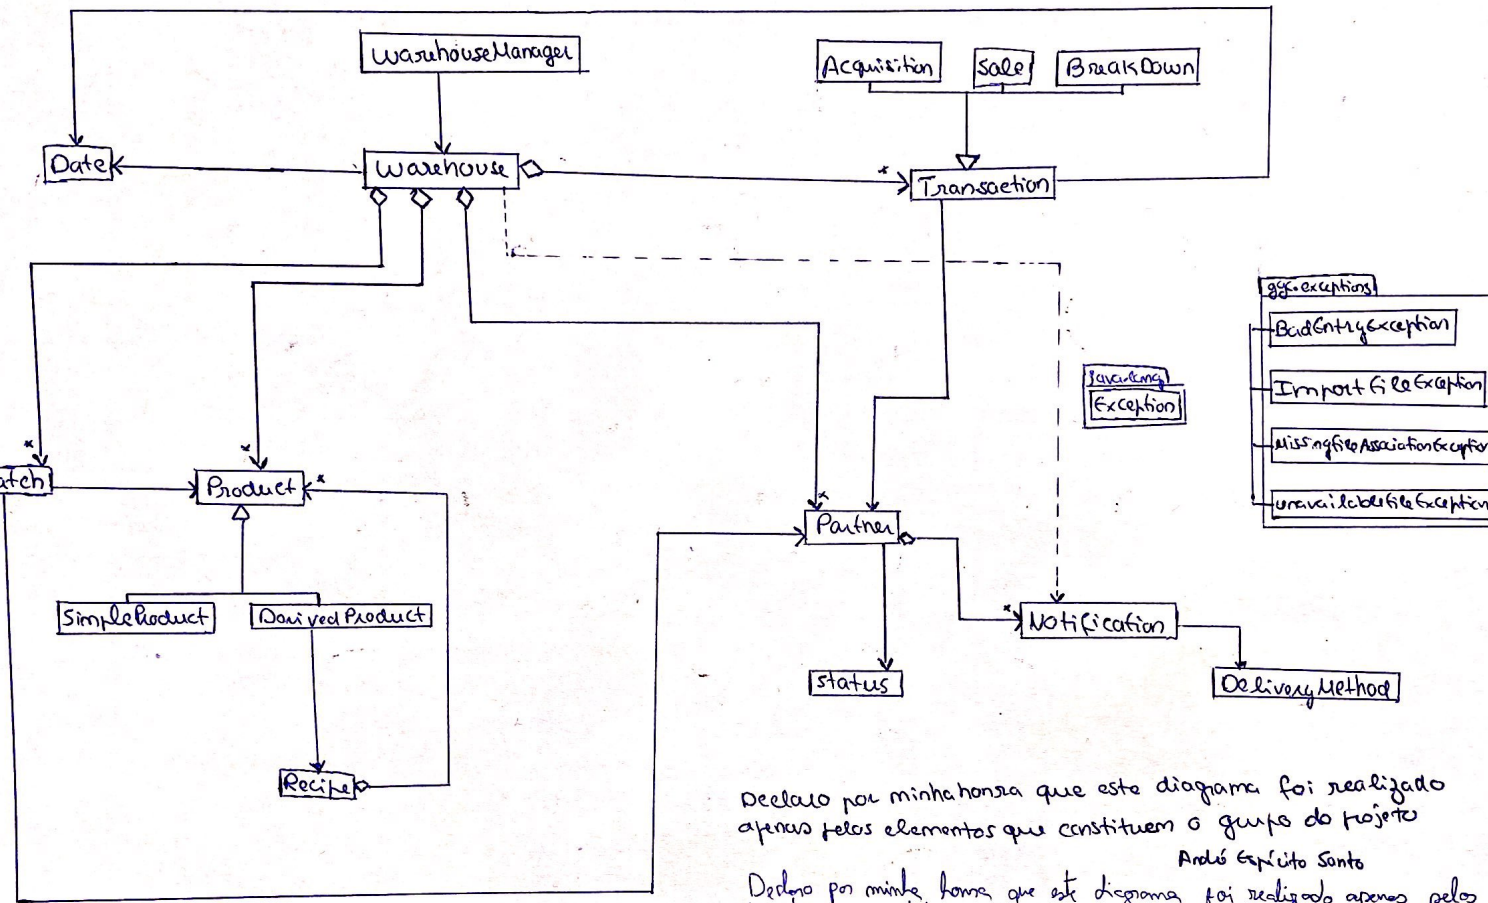 WarehouseManager
Acquisition
Sale
BreakDown
Date
Warehouse
*
Transaction
ggc.exceptions
BadEntryException
ImportFileException
MissingFileAssociationException
UnavailableFileException
java.lang
Exception
*
*
atch
Product
*
*
Partner
SimpleProduct
DerivedProduct
*
Notification
Status
DeliveryMethod
Recipe
Declaro por minha honra que este diagrama foi realizado
apenas pelos elementos que constituem o grupo do projeto
André Espírito Santo
Declaro por minha honra que este diagrama foi realizado apenas pelos